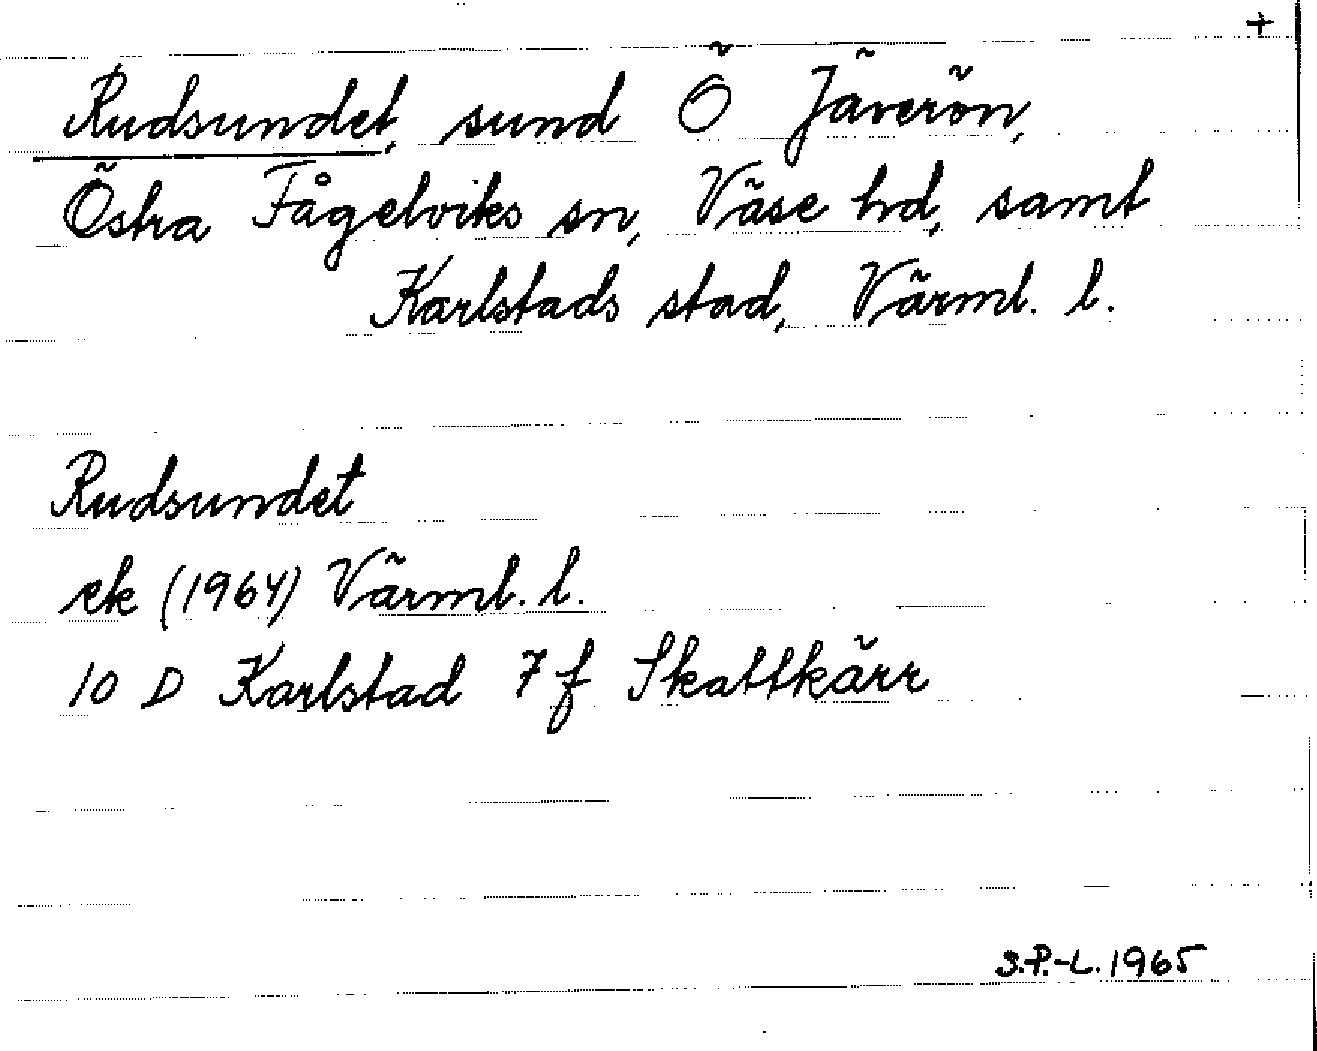 +
Rudsundet, sund Ö Jäverön,
Östra Fågelviks sn, Väse hd, samt
Karlstads stad, Värml. l.
Rudsundet
ek (1964) Värml. l.
10 D Karlstad 7 f Skattkärr
S.P.-L. 1965